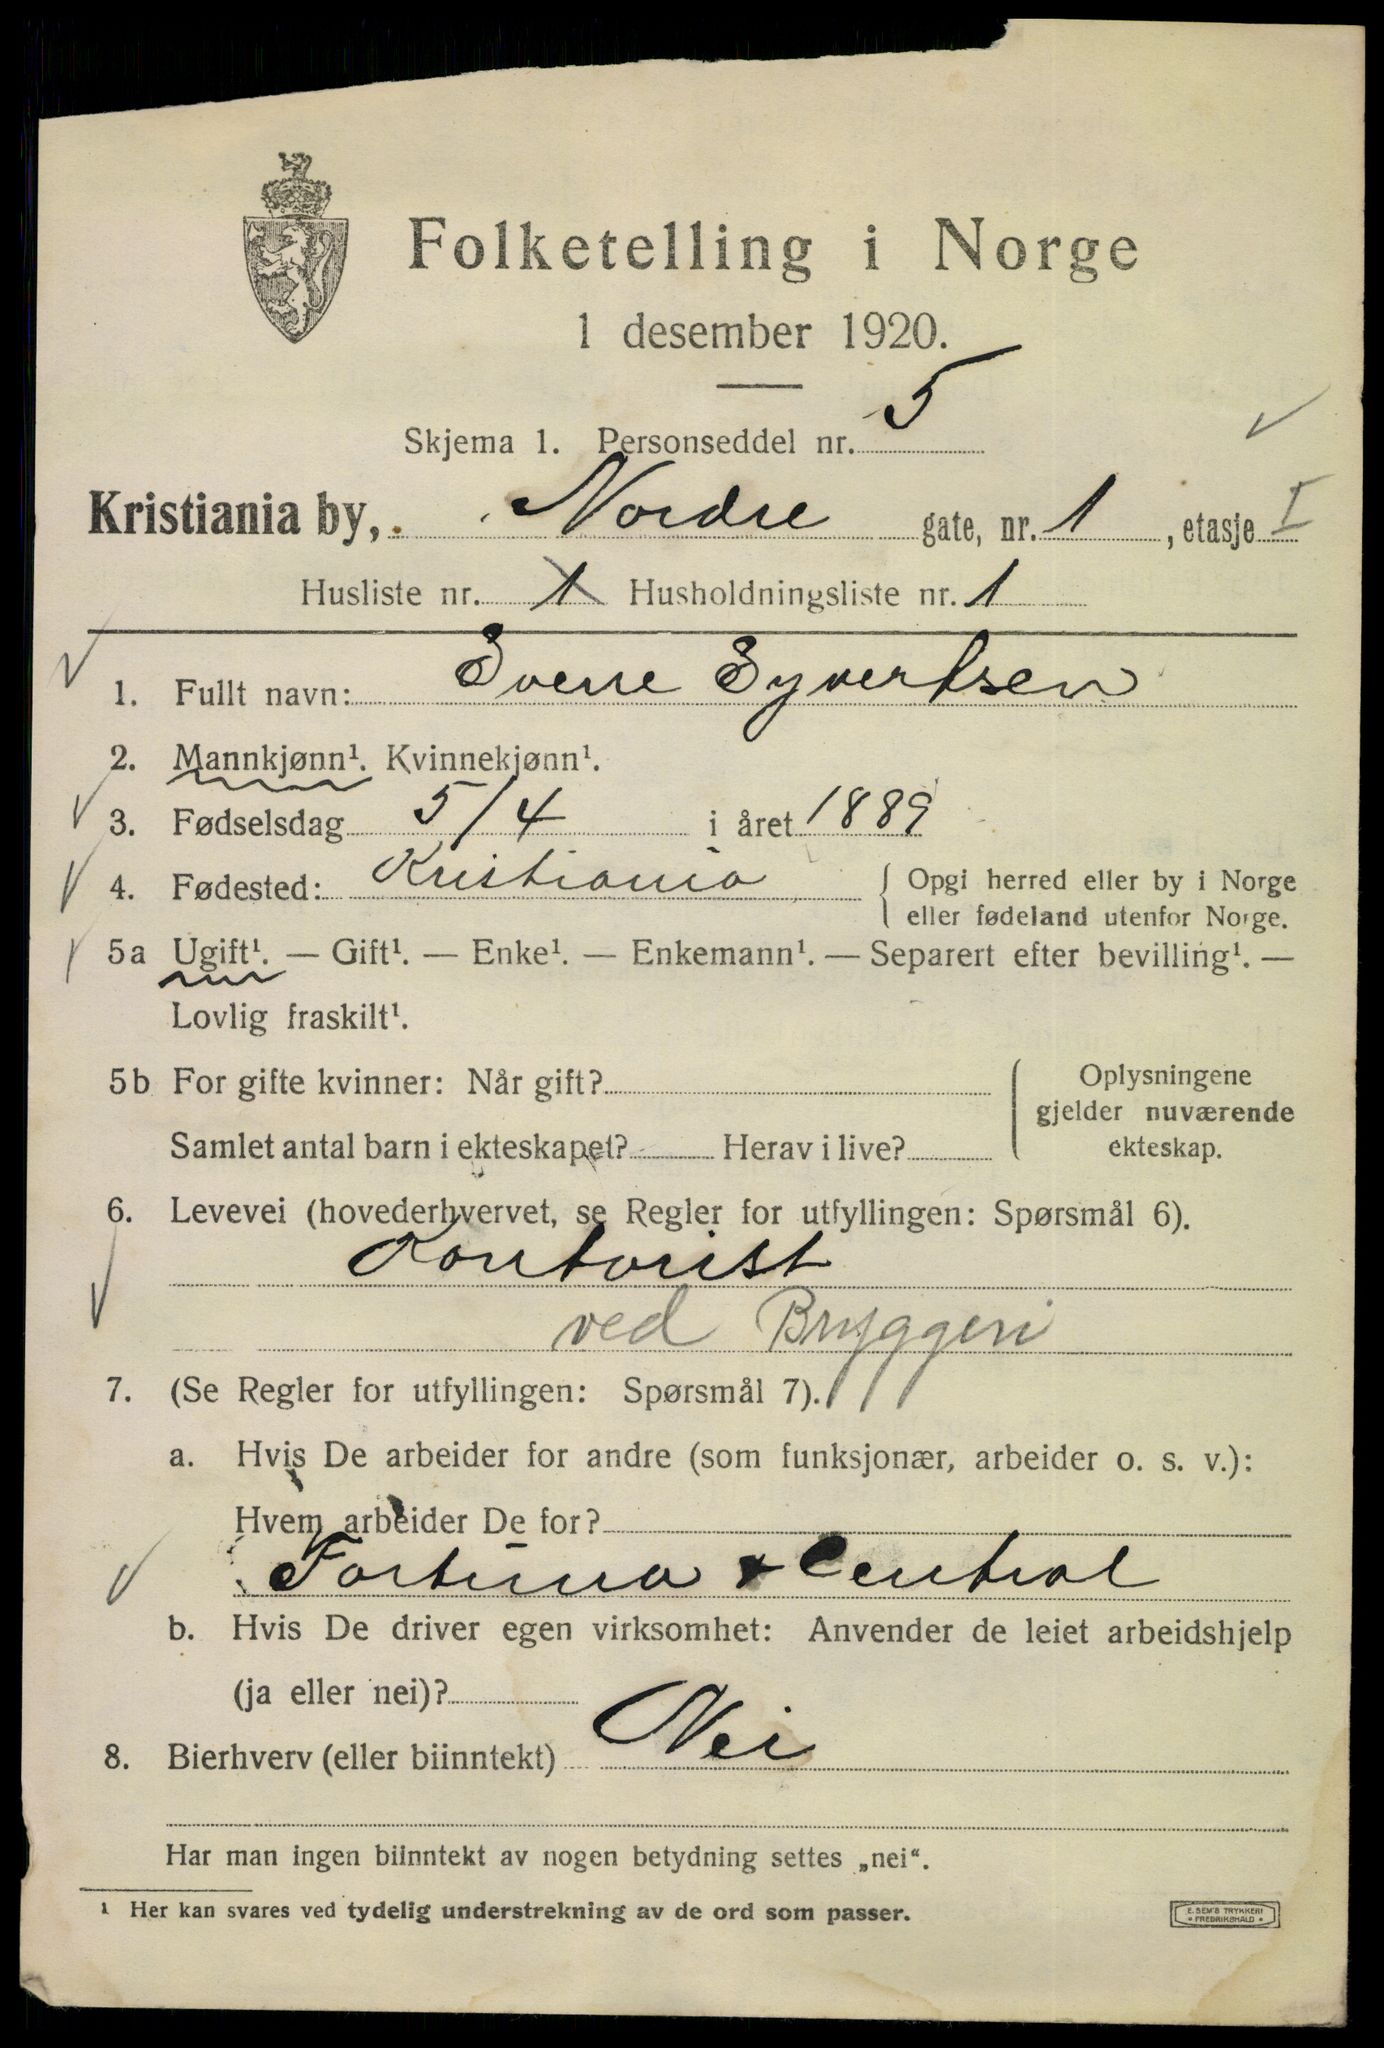 Folketelling i Norge
1 desember 1920.
Skjema 1. Personseddel nr. 5
Kristiania by, Nordre gate, nr. 1, etasje I
Husliste nr. 1 Husholdningsliste nr. 1
1. Fullt navn: Sverre Syvertsen
2. Mannkjønn¹. Kvinnekjønn¹.
3. Fødselsdag 5/4 i året 1889
4. Fødested: Kristiania { Opgi herred eller by i Norge
eller fødeland utenfor Norge.
5a Ugift¹. — Gift¹. — Enke¹. — Enkemann¹. — Separert efter bevilling¹. —
Lovlig fraskilt¹.
5b For gifte kvinner: Når gift? Oplysningene
gjelder nuværende
Samlet antal barn i ekteskapet? Herav i live? ekteskap.
6. Levevei (hovederhvervet, se Regler for utfyllingen: Spørsmål 6).
Kontorist
ved Bryggeri
7. (Se Regler for utfyllingen: Spørsmål 7).
a. Hvis De arbeider for andre (som funksjonær, arbeider o. s. v.):
Hvem arbeider De for?
Fortuna & Central
b. Hvis De driver egen virksomhet: Anvender de leiet arbeidshjelp
(ja eller nei)?
8. Bierhverv (eller biinntekt) Nei
Har man ingen biinntekt av nogen betydning settes „nei“.
¹ Her kan svares ved tydelig understrekning av de ord som passer.
E. SEM'S TRYKKERI
• FREDRIKSHALD •